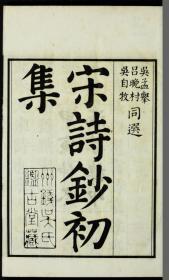 吳孟舉
呂晚村
吳自牧
同選
宋詩鈔初
集
州錢吳氏
鑑古堂藏